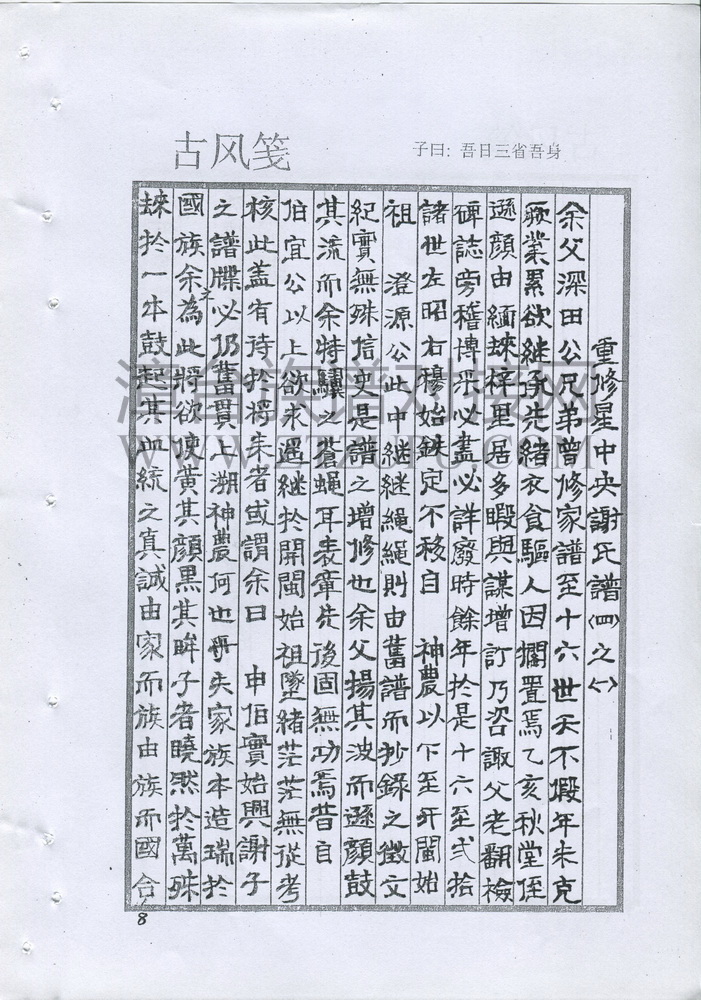 古风笺
子曰：吾日三省吾身
重修星中央謝氏譜㈣之㈠
余父深田公兄弟曾修家譜至十六世天不假年未克
厥業累欲継承先緒衣食驅人因擱置焉乙亥秋堂侄
遜顔由緬埭梓里居多暇與謀增訂乃咨諏父老翻檢
碑誌旁稽博采必盡必詳廢時餘年於是十六至弐拾
諸世左昭右穆始鉄定不移自　神農以下至开閩始
祖　澄源公此中継継繩繩則由舊譜而抄錄之徵文
紀實無殊信史是譜之增修也余父揚其波而遜顔鼓
其流而余特驥之蒼蝇耳表章先後固無功焉昔自
伯宜公以上欲求遇継於開閩始祖墜緒茫茫無從考
核此盖有待於将来者或謂余曰　申伯實始興謝子
之譜牒必仍舊貫上溯神農何也乎夫家族本造瑞於
國族余之為此將欲使黄其顔黒其眸子者曉然於萬殊
埭於一本鼓起其血統之真誠由家而族由族而國合
8
漳台族谱对接网
WWW.ZTZUPU.COM